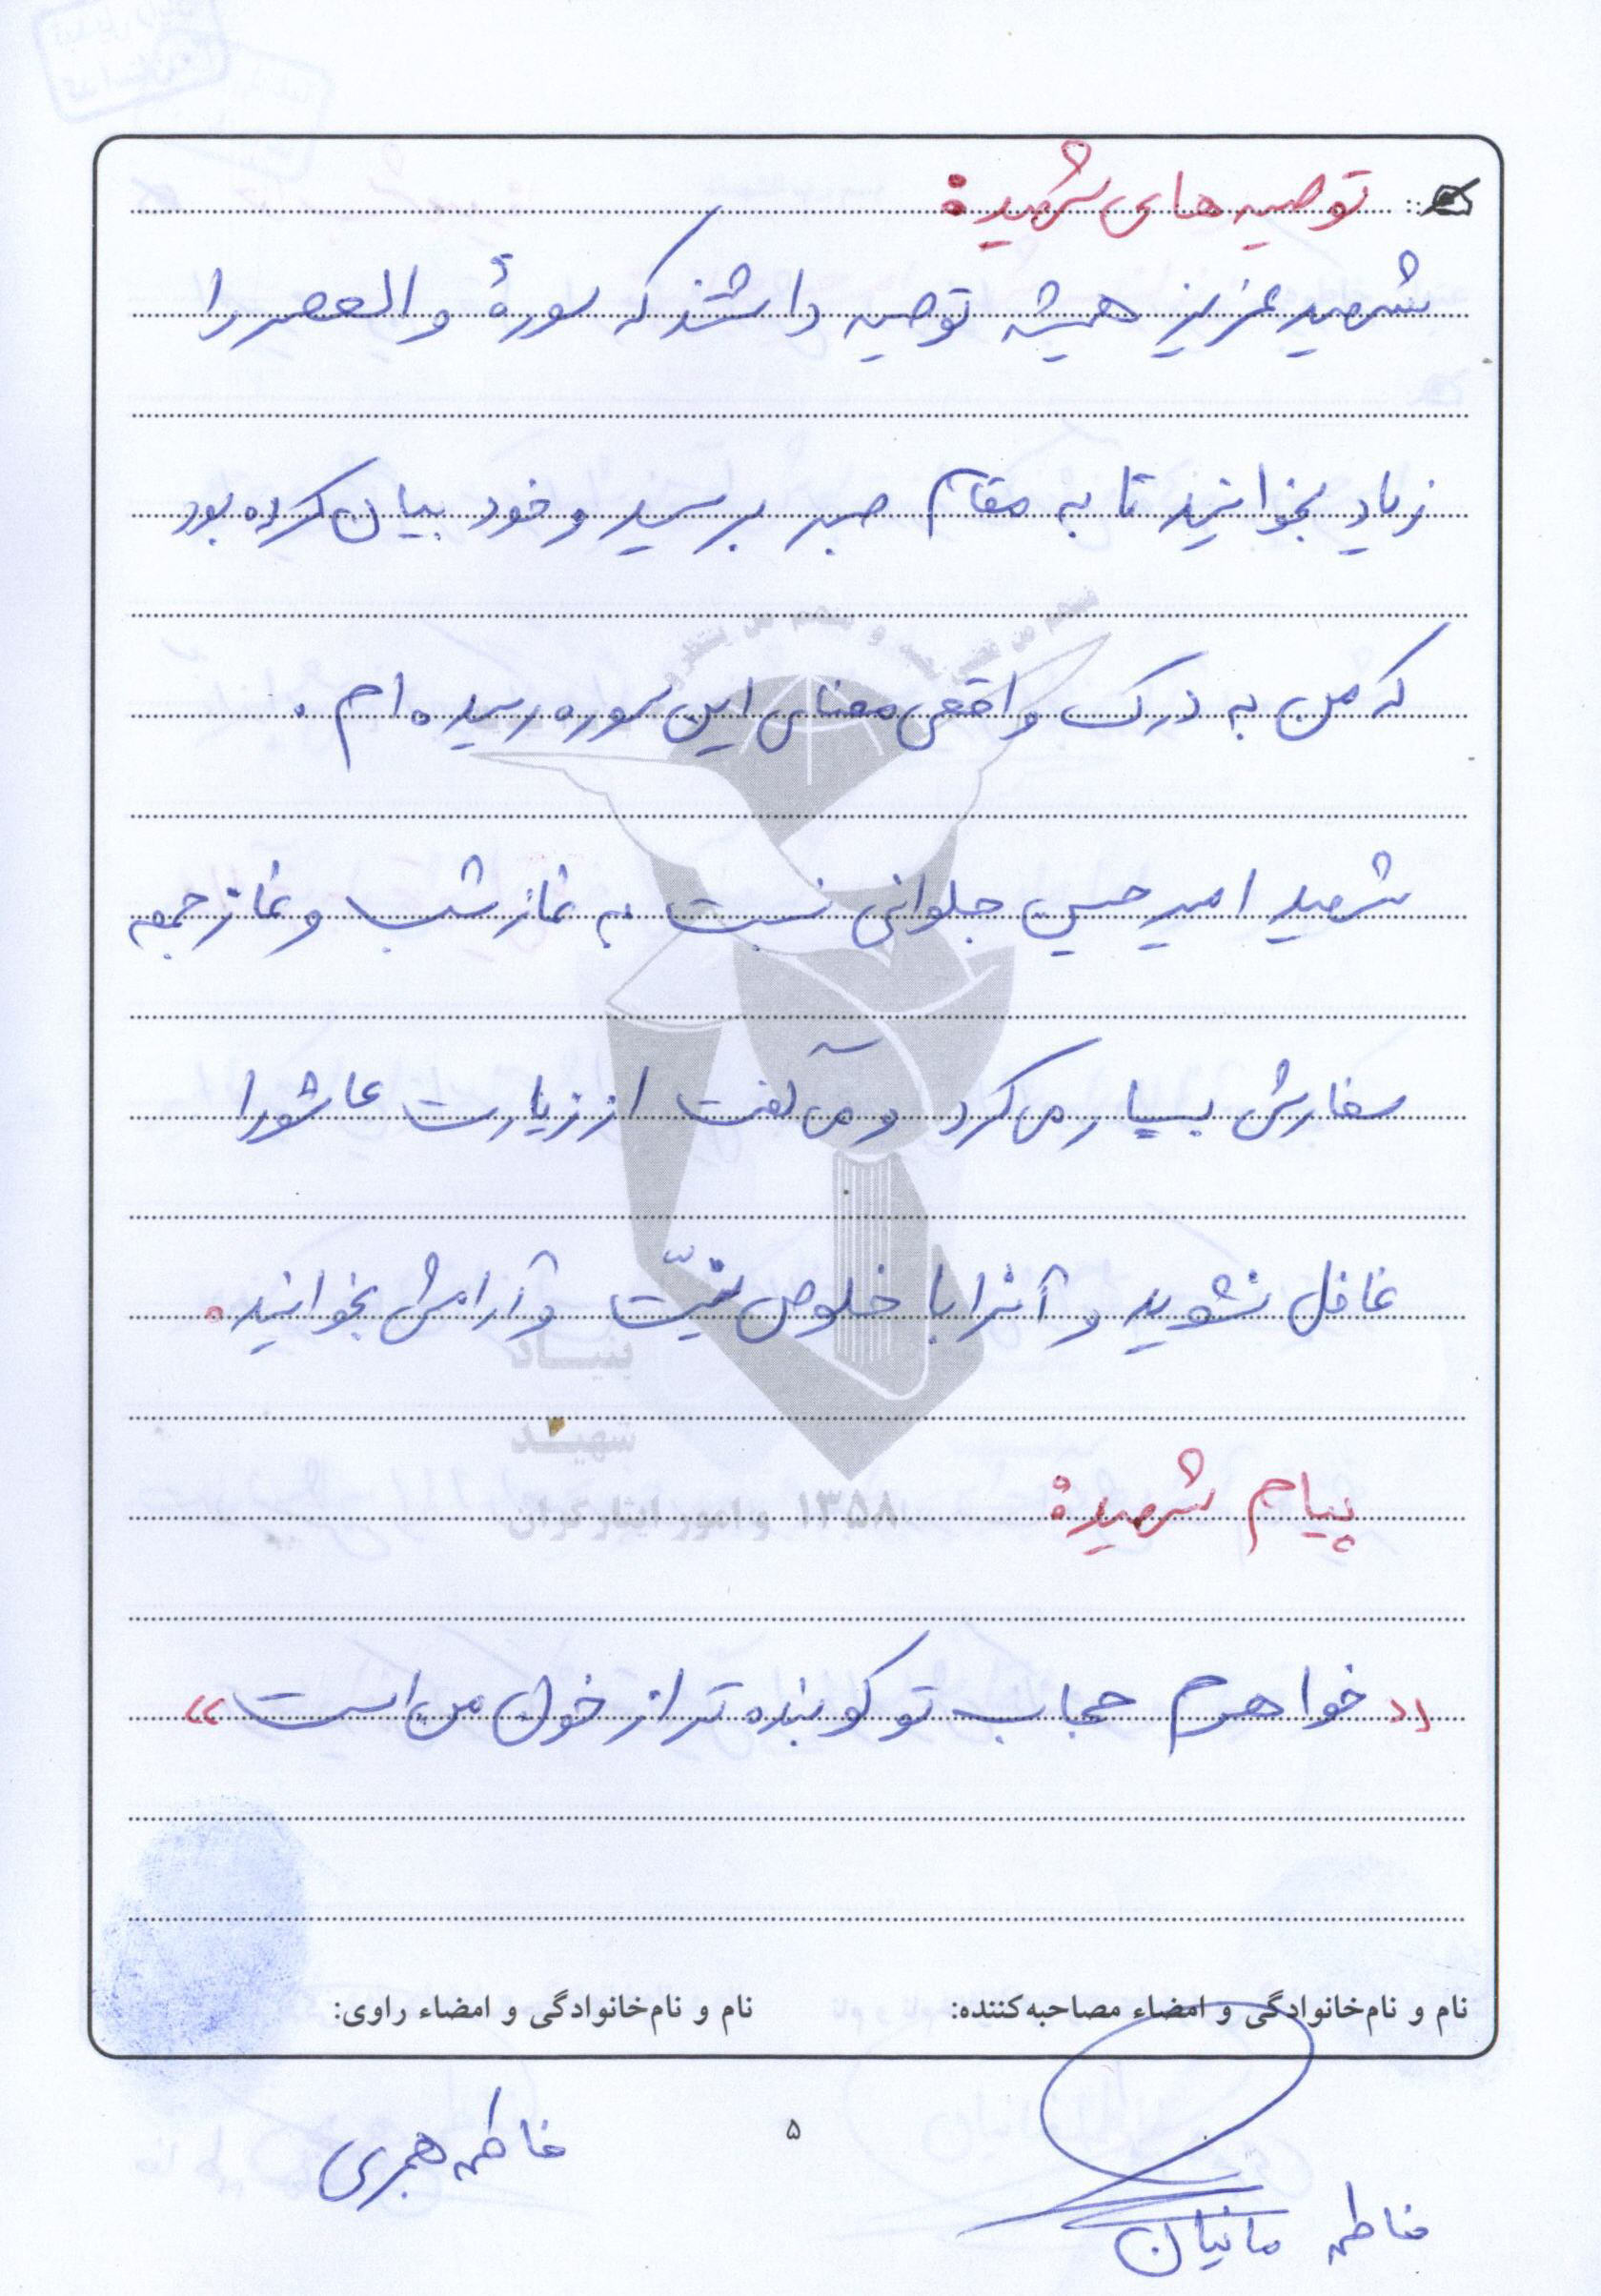 توصیه های شهید:
شهید عزیز همیشه توصیه داشتند که سورهٔ والعصر را
زیاد بخوانید تا به مقام صبر برسید و خود بیان کرده بود
که من به درک واقعی معنای این سوره رسیده ام.
شهید امیر حسین جلوانی نسبت به نماز شب و نماز جمعه
سفارش بسیار می کرد و می گفت از زیارت عاشورا
غافل نشوید و آنرا با خلوص نیّت و آرامش بخوانید.
بنیاد
شهید
و امور ایثارگران ۱۳۵۸
پیام شهید:
«خواهرم حجاب تو کوبنده تر از خون من است»
نام و نام‌خانوادگی و امضاء مصاحبه‌کننده:
نام و نام‌خانوادگی و امضاء راوی:
فاطمه هجری
۵
فاطمه مانیان